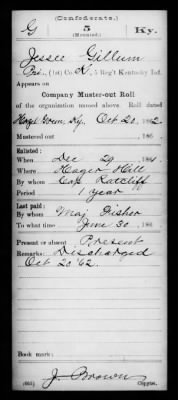 (Confederate.)
G 5 Ky.
(Mounted.)
Jesse Gillum
Pri., (1st) Co. K, 5 Reg't Kentucky Inf.
Appears on
Company Muster-out Roll
of the organization named above. Roll dated
Oct 20, 1862.
Mustered out 186 .
Enlisted:
When Dec 29, 1861.
Where Hager Hill
By whom Cap Ratcliff
Period 1 year
Last paid:
By whom Maj Fisher
To what time June 30, 186
Present or absent Present
Remarks: Discharged
Oct 20 '62.
Book mark:
J. Brown
(661) Copyist.